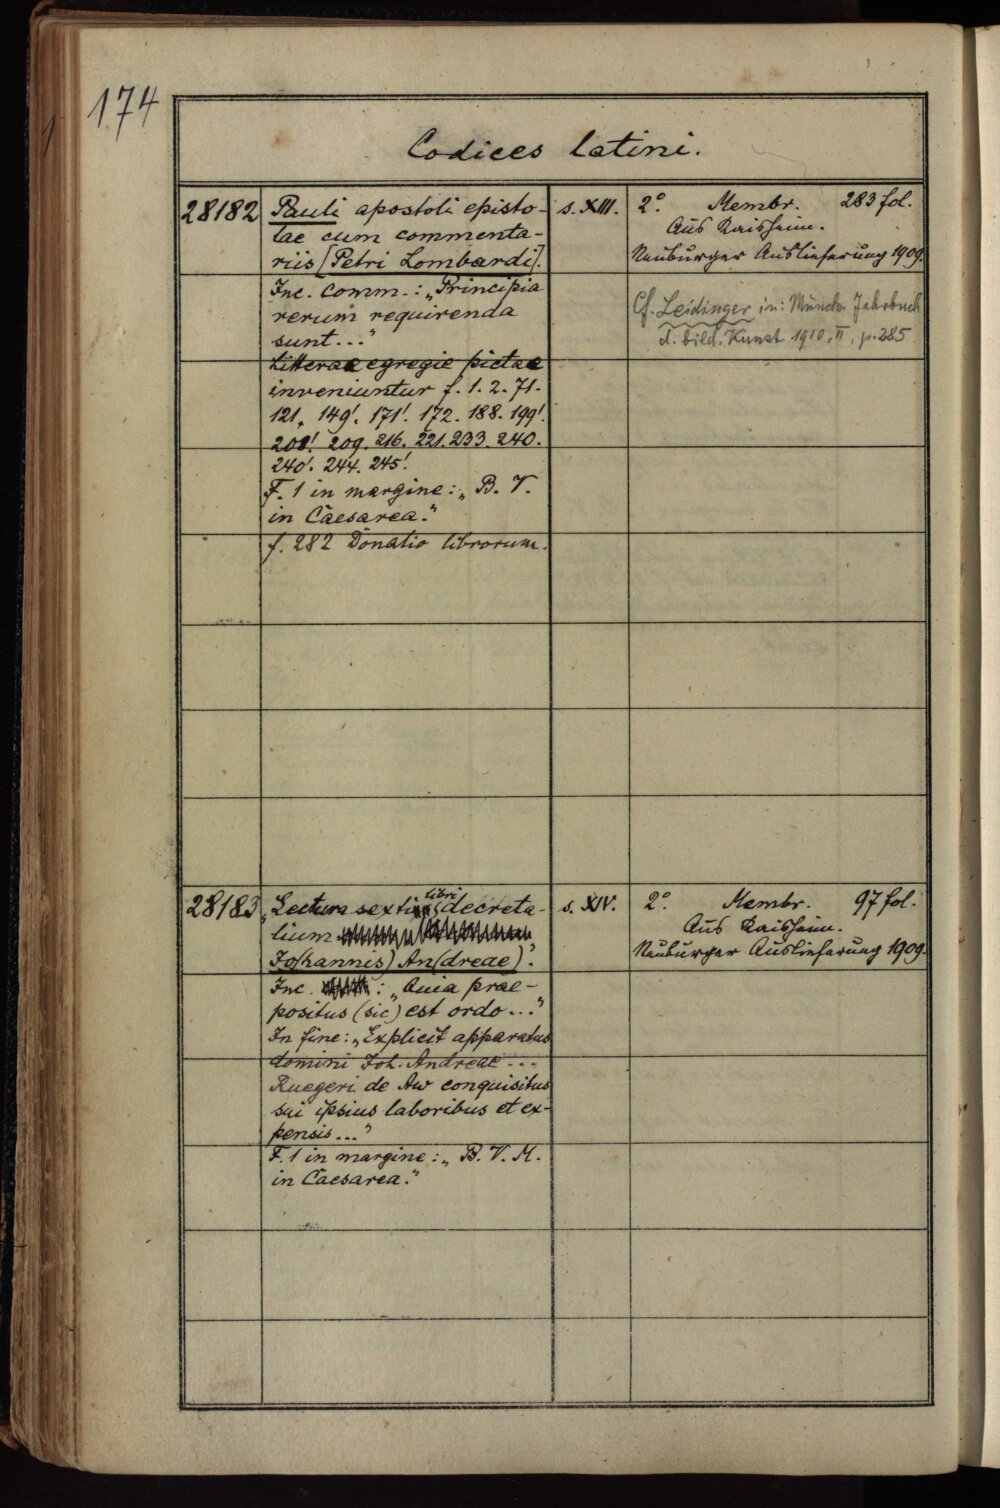 174
Codices latini.
28182
Pauli apostoli episto-
lae cum commenta-
riis [Petri Lombardi].
Inc. Comm.: „Principia
rerum requirenda
sunt..."
Litterae egregie pictae
inveniuntur f. 1. 2. 71.
121. 149'. 171'. 172. 188. 199'.
208'. 209. 216. 221. 233. 240.
240'. 244. 245'.
F. 1 in margine: „B. V.
in Caesarea."
f. 282 Donatio librorum.
s. XIII.
2° Membr. 283 fol.
Aus Kaisheim.
Neuburger Auslieferung 1909.
Cf. Leidinger in: Münch. Jahrbuch
d. bild. Kunst 1910, II, p. 285
28183
„Lectura sexti libri decreta-
lium
Jo(hannis) An(dreae)".
Inc. : „Quia prae-
positus (sic) est ordo..."
In fine: „Explicit apparatus
domini Joh. Andreae ...
Ruegeri de Aw conquisitus
sui ipsius laboribus et ex-
pensis..."
F. 1 in margine: „B. V. M.
in Caesarea."
s. XIV.
2° Membr. 97 fol.
Aus Kaisheim.
Neuburger Auslieferung 1909.